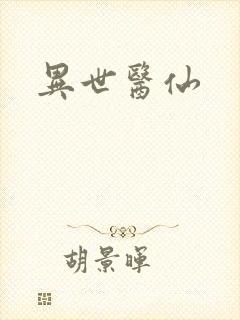 異世醫仙
胡景暉